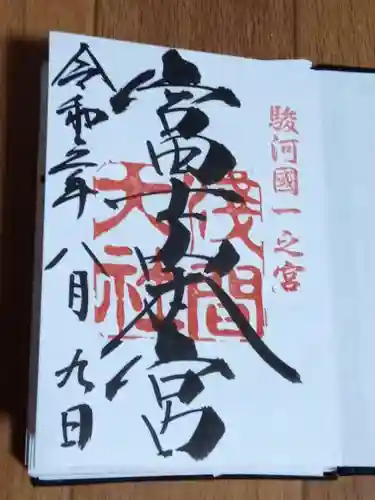 駿河國一之宮
富士山本宮
淺間
大社
令和三年八月九日